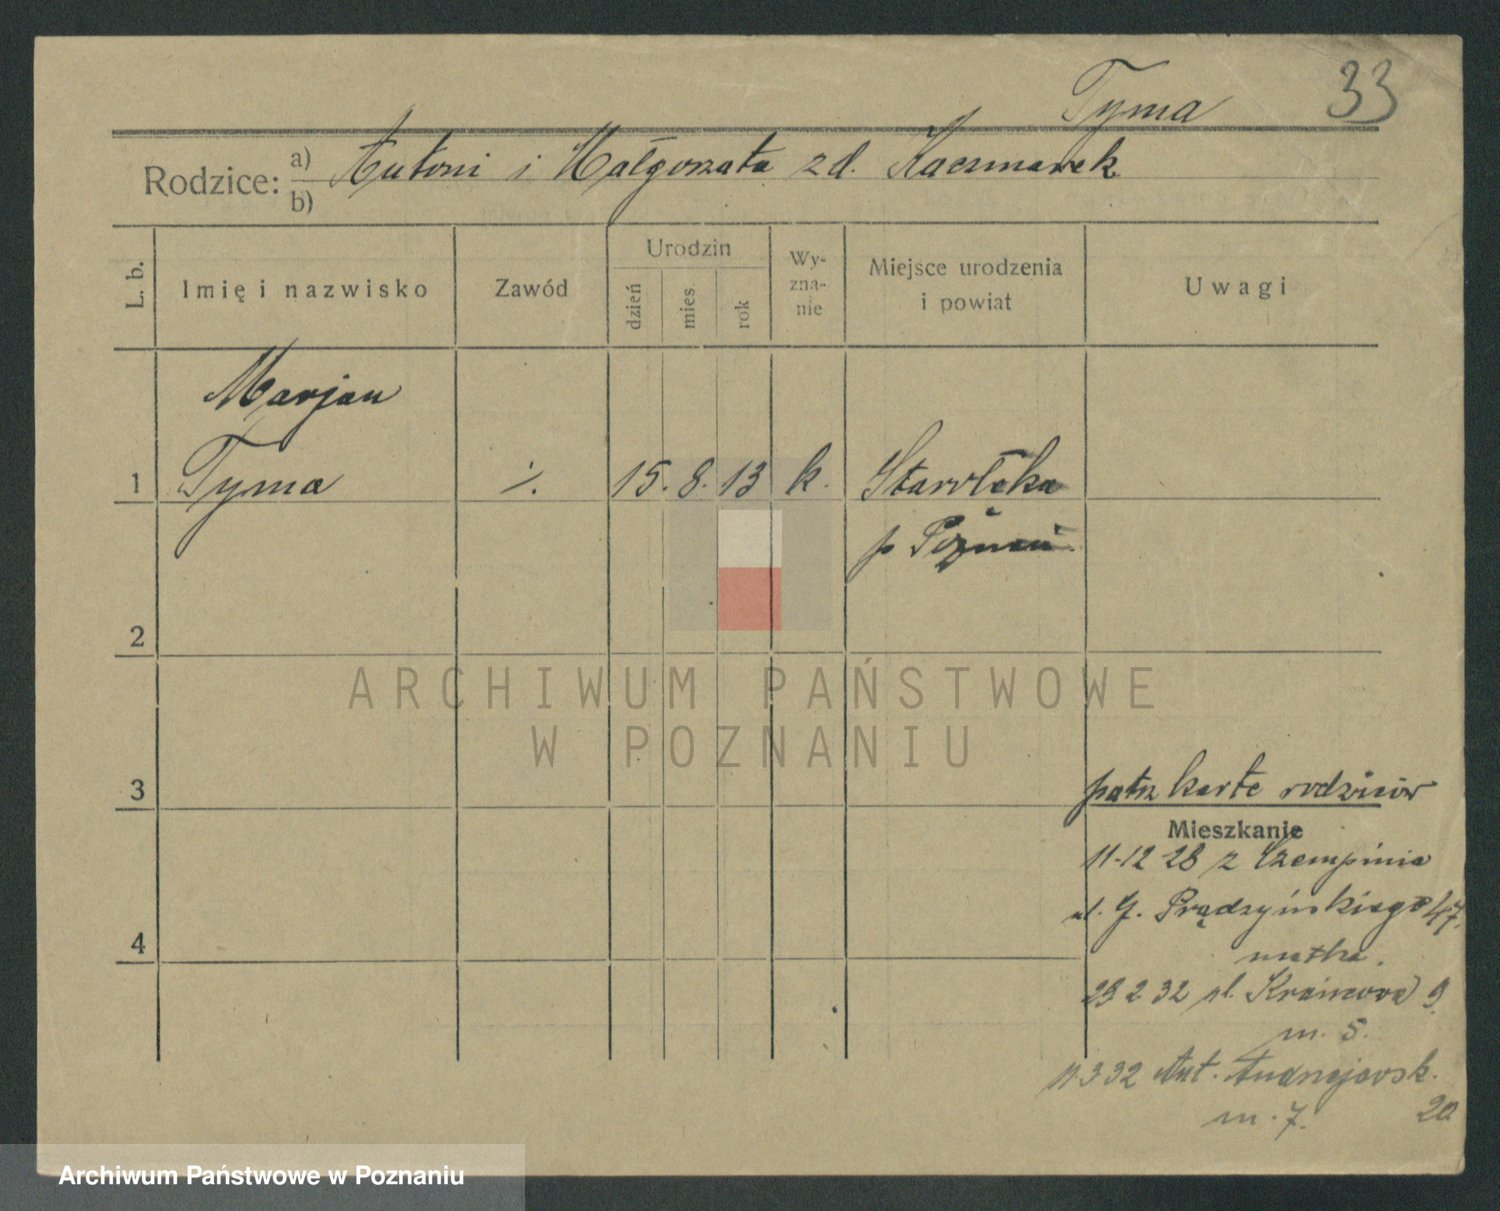 Tyma 33
Rodzice: a) Antoni i Małgorzata zd. Kaczmarek
b)
L. b. Imię i nazwisko Zawód Urodzin dzień mies. rok Wy-zna-nie Miejsce urodzenia i powiat Uwagi
Marjan
1 Tyma ·/. 15. 8. 13 k. Starołęka
p Poznań
2
3
patrz kartę rodziców
Mieszkanie
11-12 28 z Czempinia
ul. G. Prądzyńskiego 47.
matka.
29 2 32 ul. 9.
4
m. 5.
11.3 32 Ant. Andrzejewsk. 20
m. 7.
ARCHIWUM PAŃSTWOWE
W POZNANIU
Archiwum Państwowe w Poznaniu